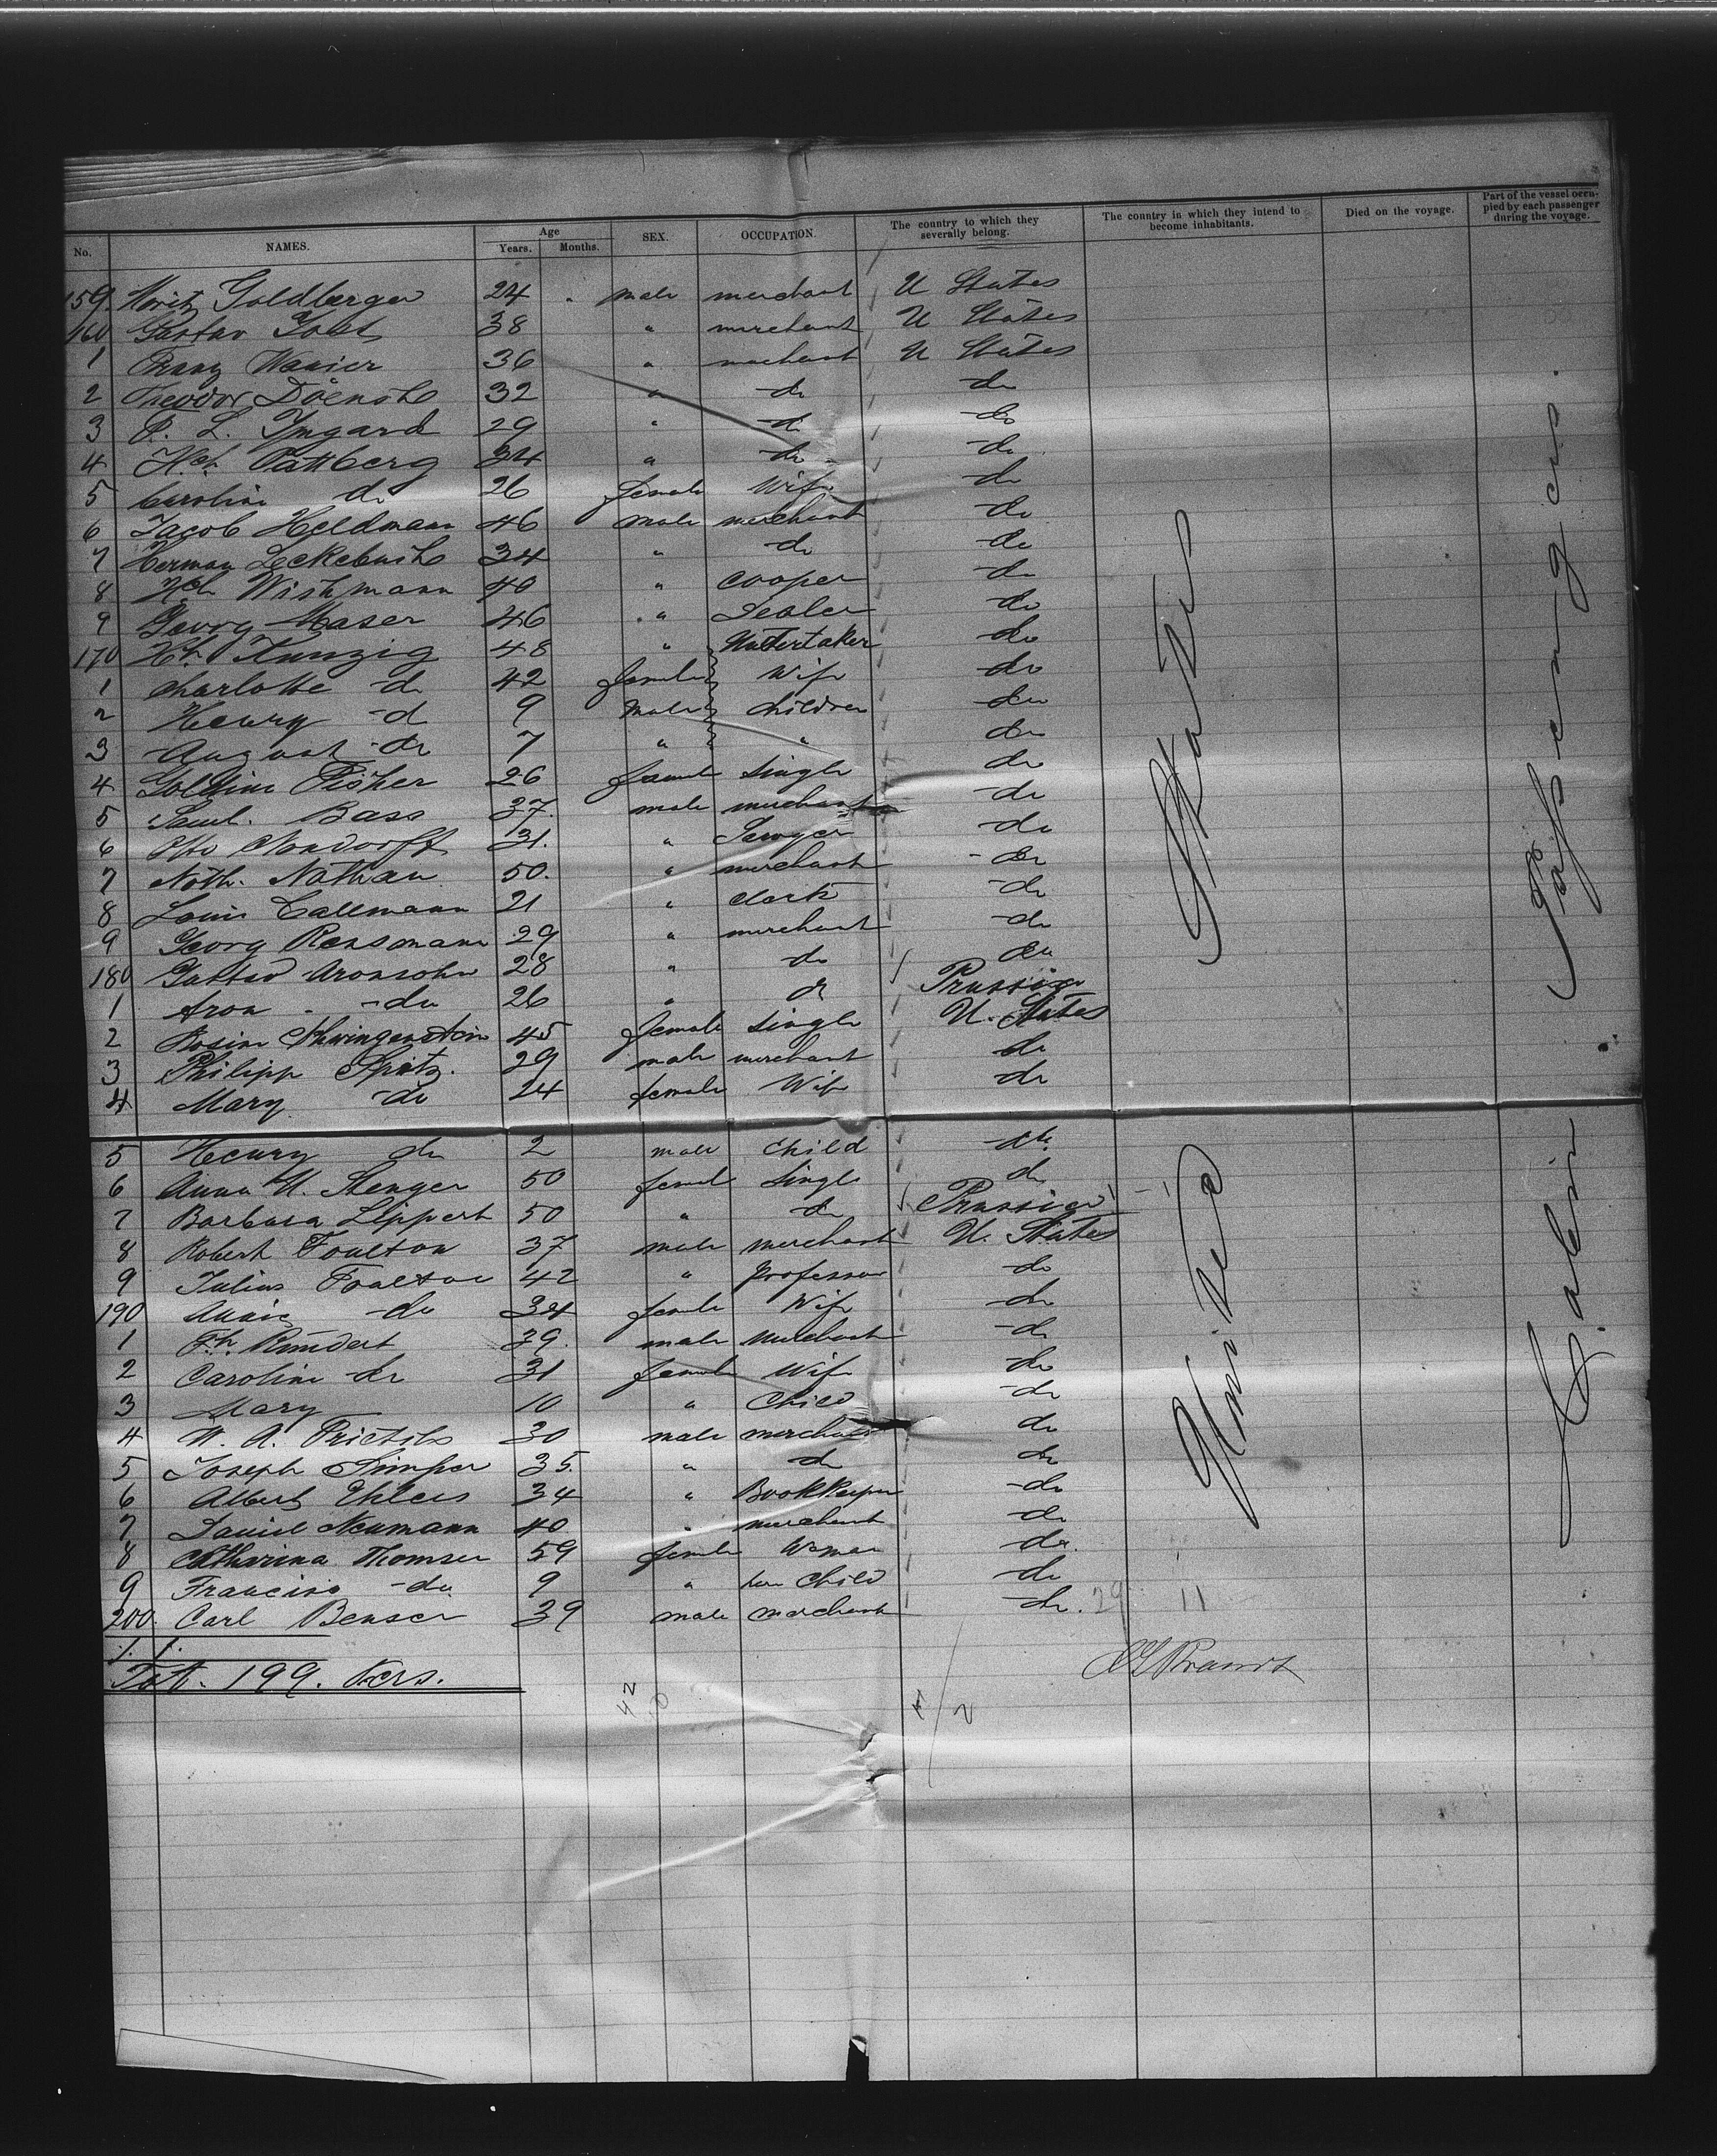 No. NAMES. Age Years. Months. SEX. OCCUPATION. The country to which they severally belong. The country in which they intend to become inhabitants. Died on the voyage. Part of the vessel occupied by each passenger during the voyage.
159. Moritz Goldberger 24 " male merchant U States
160 Gustav 38 " merchant U States
1 Franz Wanier 36 " merchant U States
2 Theodor 32 " do do
3 29 " do do
4 Hch. Pattberg 34 " do do
5 Caroline do 26 female Wife do
6 Jacob Heldmann 46 male merchant do
7 Herman Leckebusch 34 " do do
8 Hch Wishmann 40 " Cooper do
9 Georg Maser 46 " Dealer do
170 Hh. Kunzig 48 " Undertaker do
1 Charlotte do 42 female Wife do
2 Henry do 9 male Children do
3 August do 7 " " do
4 Fisher 26 female Single do
5 Saml. Bass 37. male merchant do
6 Otto 31. " do
7 Nath. Nathan 50. " merchant do
8 Louis Callmann 21 " Clark do
9 Georg Rensmann 29 " merchant do
180 Aronsohn 28 " do do
1 Aron do 26 " do Prussia
2 Rosine 45 female Single U. States
3 Philipp Spitz. 29 male merchant do
4 Mary do 24 female Wife do
5 Henry do 2 male Child do
6 Anna M. Stenger 50 female Single do
7 Barbara Lippert 50 " do Prussia
8 Robert Foulton 37 male merchant U. States
9 Julius Foulton 42 " professor do
190 Annie do 34 female Wife do
1 39. male merchant do
2 Caroline do 31 female Wife do
3 Mary 10 " Child do
4 W. A. 30 male merchant do
5 Joseph 35. " do do
6 Albert Ehlers 34 " Bookkeeper do
7 Daniel Neumann 40 " merchant do
8 Catharina Thomser 59 female Woman do.
9 Francisca do 9 " her Child do
200. Carl Benser 39 male merchant do. 29 11
1. 1.
Tot. 199. Pers.
United States
Cabin Passengers.